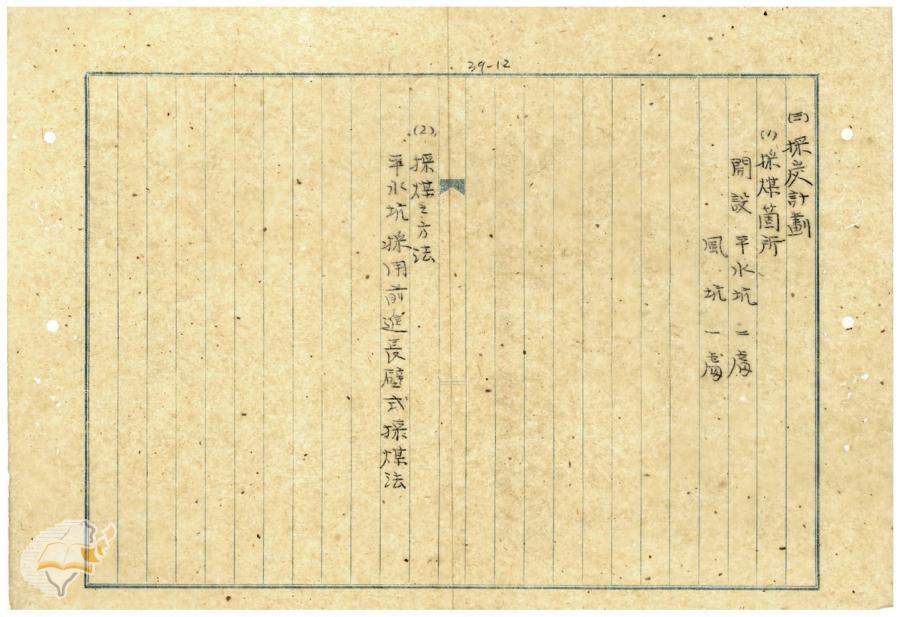 39-12
(三)採炭計劃
(1)採煤箇所
開設 平水坑 二處
風坑 一處
(2)採煤之方法
平水坑採用前進長壁式採煤法